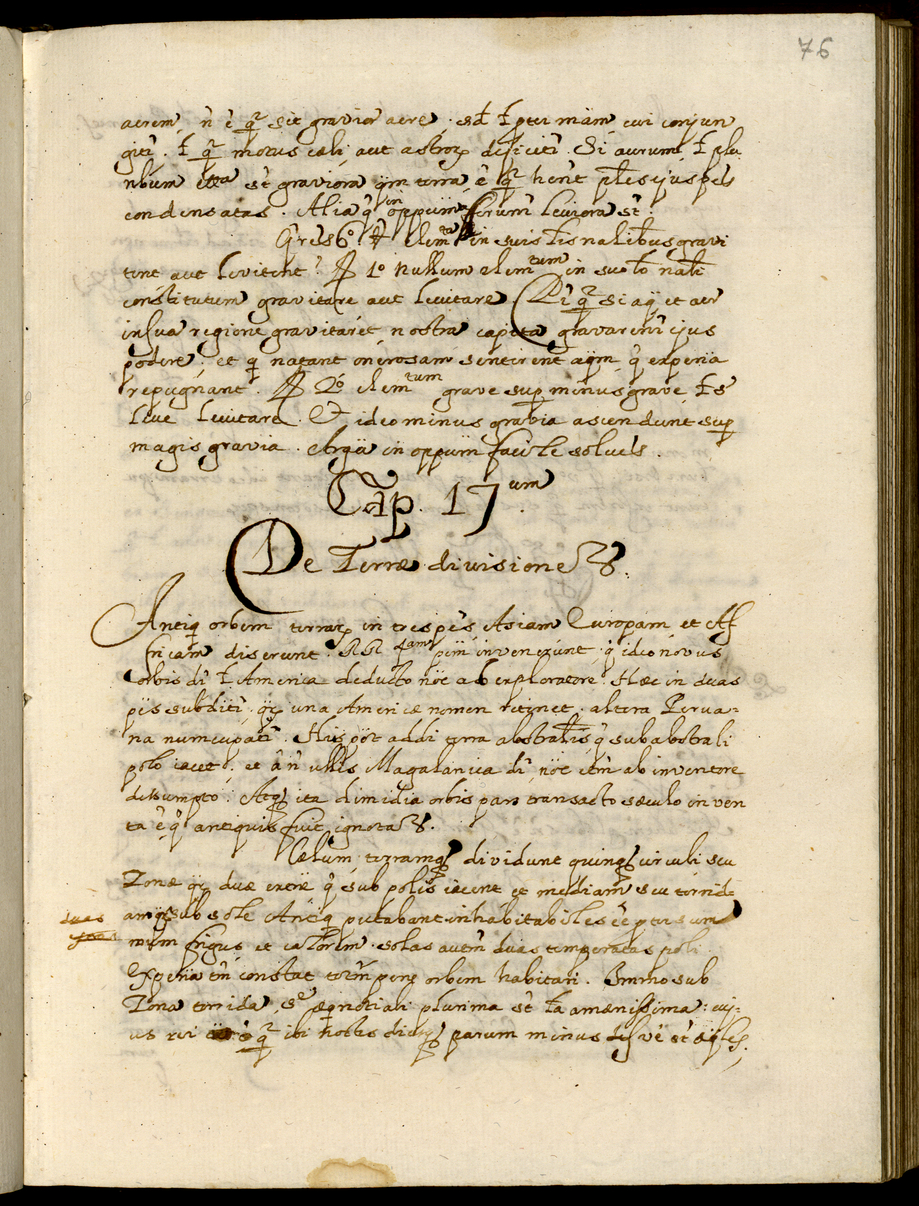 76
aerem, n̄ ē q̄ʳ sit gravior aere. sd̄ ł pter m̄am cui conjun
gitr̄. ł q̄ʳ motus cæli aut astror̄ dejicitr̄. Si aurum, ł plu
mbum st̄ graviora q̄m terra, ē q̄ʳ hēnt ptēs ejus pēs
condensatas. Alia q̄ in opp̄um ferunr̄ leviora st̄.
Qrēs 6º elemta in suis łis nalibus gravi
tent aut levitent? 1º nullum elemtum in suo ło nāli
constitutum gravitare aut levitare Pr̄ q̄ʳ si aq̄ et aer
in sua regione gravitaret, nostra capita gravarenr̄ ejus
podere, et q̄ natant onerosam sentirent aq̄m q̄ experīa
repugnant. 2º elemtum grave sup̄ minus grave łs
leve levitare. Et ideo minus gravia ascendunt sup̄
magis gravia. Argā in opp̄um facile solvēs.
Cap. 17um
De Terræ divisione
Antiq̄ orbem terrar̄ in tres p̄es Asiam Europam, et Af
fricam diserunt. RR 4am p̄em invenerunt, q̄ ideo novus
orbis dr̄ ł America deducto nōe ab exploratore. Hæc in duas
p̄es subditr̄. q̄r̄ una Americæ nomen retinet. altera Perua-
na nuncupatr̄. His pōt addi terra abstralis q̄ sub abstrali
polo iacet. et ā n̄ullis Magalanica dr̄ nōe itm̄ ab inventore
desumpto. Atq̄ ita dimidia orbis pars transacto sæculo inven
ta ē q̄ antiquis fuit ignota.
Cælum, terramq̄ dividunt quinq̄ circuli seu
Zonæ q̄r̄ duæ extrē q̄ sub polis iacent et mediam seu torrid
am q̄ sub sole Antiq̄ putabant inhabitabiles ēe pter sum
duas
mum frigus et calorem. solas autem duas temperatas poli
Experīa tn̄ constat totm̄ pene orbem habitari. Immo sub
Zona torrida, sē æqinotiali plurima st̄ ła amenissima: cuj-
us rei ē q̄ʳ ibi noctes dieq̄ parum minus sēve st̄ æq̄les.